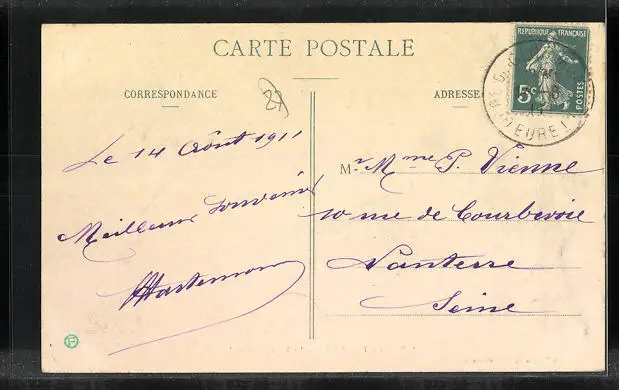 CARTE POSTALE
CORRESPONDANCE
ADRESSE
REPUBLIQUE FRANÇAISE
5c
POSTES
EURE
Le 14 Août 1911
Meilleurs Souvenirs
M r Mme P. Vienne
10 rue de Courbevoie
Nanterre
Seine